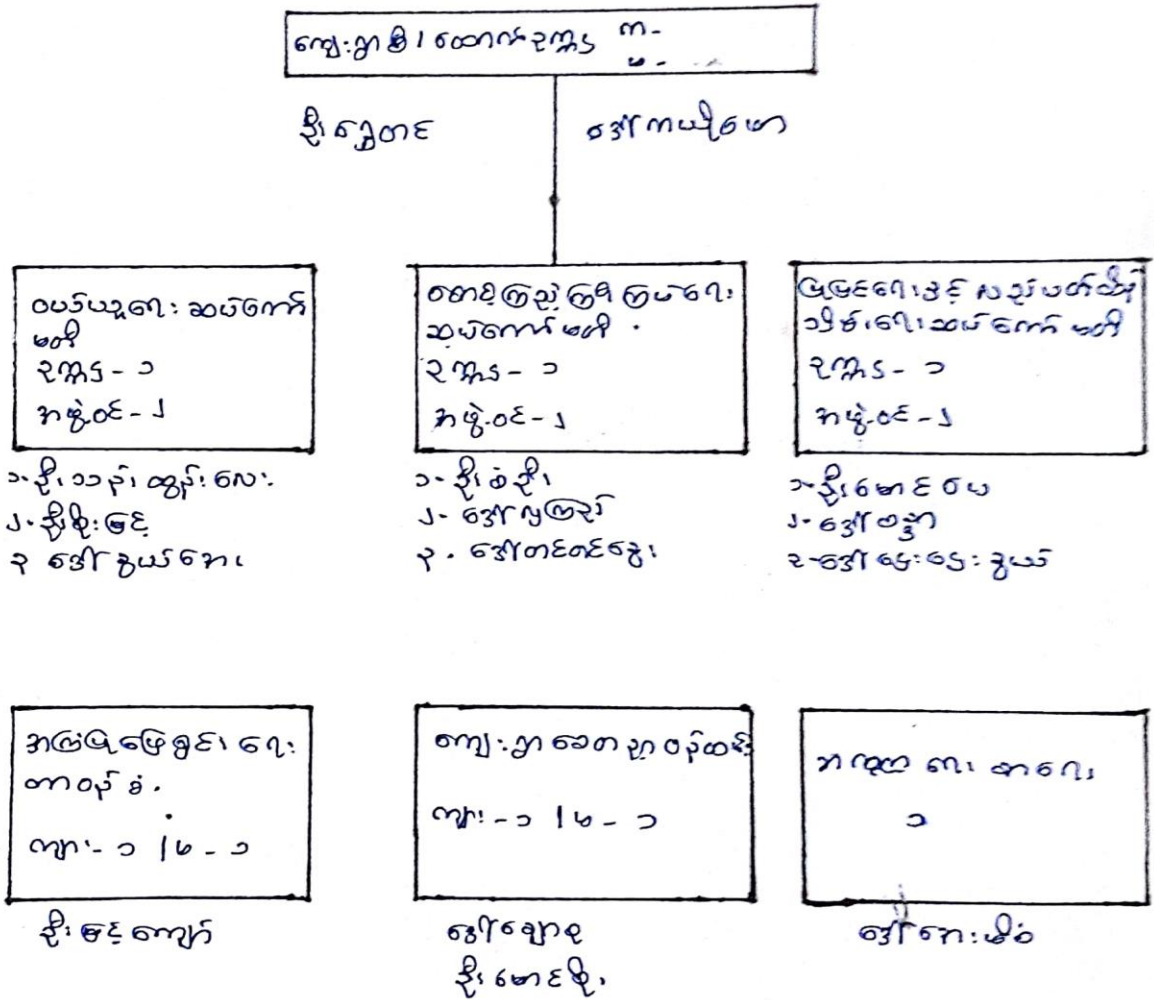 ကျေးရွာစီးထောက်ဥက္ကဌ ကျ-
မ-
ဦးရွှေတင်
ဒေါ်ကယ်ဖိုမော
ဝယ်ယူရေး ဆပ်ကော်
မတီ
ဥက္ကဌ - ၁
အဖွဲ့ဝင် - ၂
၁- ဦးသန်းထွန်းလေး
၂- ဦးစိုးမြင့်
၃ ဒေါ်နွယ်အေး
စောင့်ကြည့်ကြီးကြပ်ရေး
ဆပ်ကော်မတီ
ဥက္ကဌ - ၁
အဖွဲ့ဝင် - ၂
၁- ဦးစံဦး
၂- ဒေါ်လှကြည်
၃- ဒေါ်တင်တင်ဆွေး
ပြုပြင်ရေးနှင့် လည်ပတ်ထိန်း
သိမ်းရေးဆပ်ကော်မတီ
ဥက္ကဌ - ၁
အဖွဲ့ဝင် - ၂
၁- ဦးမောင်ဝေ
၂- ဒေါ်
၃- ဒေါ်ဌေးဌေးနွယ်
အကြံပြုဖြေရှင်းရေး
တာဝန်ခံ
ကျား - ၁ / မ - ၁
ဦးမြင့်ကျော်
ကျေးရွာစေတနာ့ဝန်ထမ်း
ကျား - ၁ / မ - ၁
ဒေါ်ချောစု
ဦးမောင်စိုး
အကူစာရေး စာရေး
၁
ဒေါ်အေးမိစံ